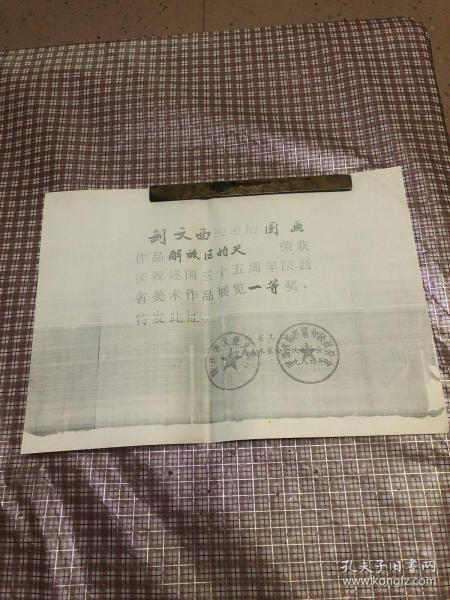 刘文西同志的国画
作品解放区的天 荣获
庆祝建国三十五周年陕西
省美术作品展览一等奖，
特发此证
孔夫子旧书网
www.kongfz.com